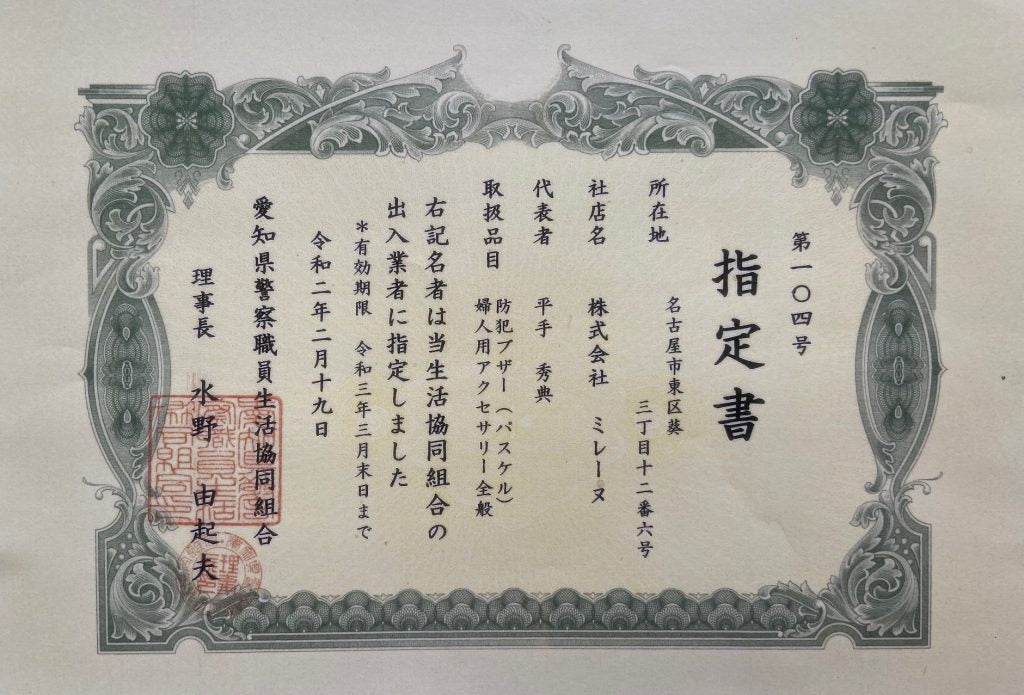 第一〇四号
指定書
所在地
名古屋市東区葵
三丁目十二番六号
社店名 株式会社 ミレーヌ
代表者 平手 秀典
取扱品目 防犯ブザー(パスケル)
婦人用アクセサリー全般
右記名者は当生活協同組合の
出入業者に指定しました
*有効期限 令和三年三月末日まで
令和二年二月十九日
愛知県警察職員生活協同組合
理事長 水野 由起夫